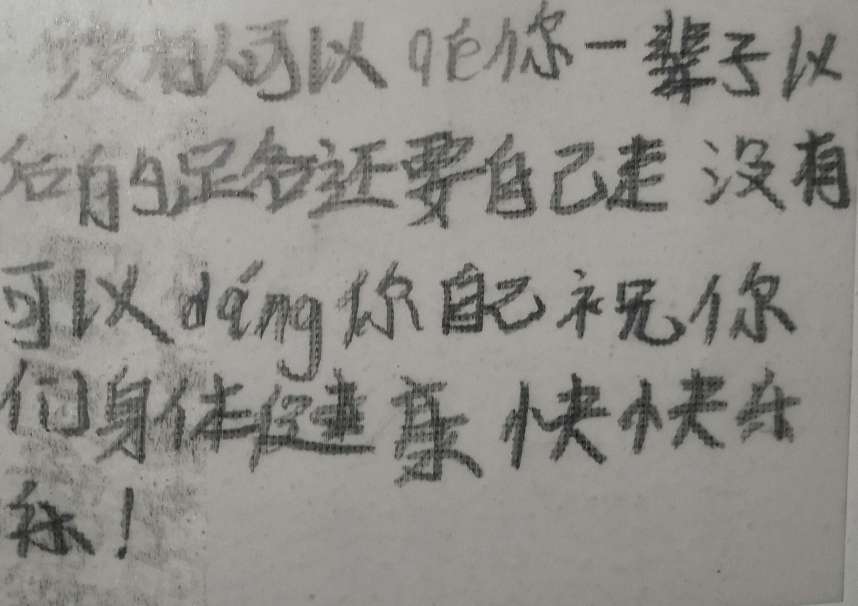 没有人可以 陪你一辈子以
后的路还要自己走 没有
可以 dáng 你自己祝你
们身体健康 快快乐
乐！